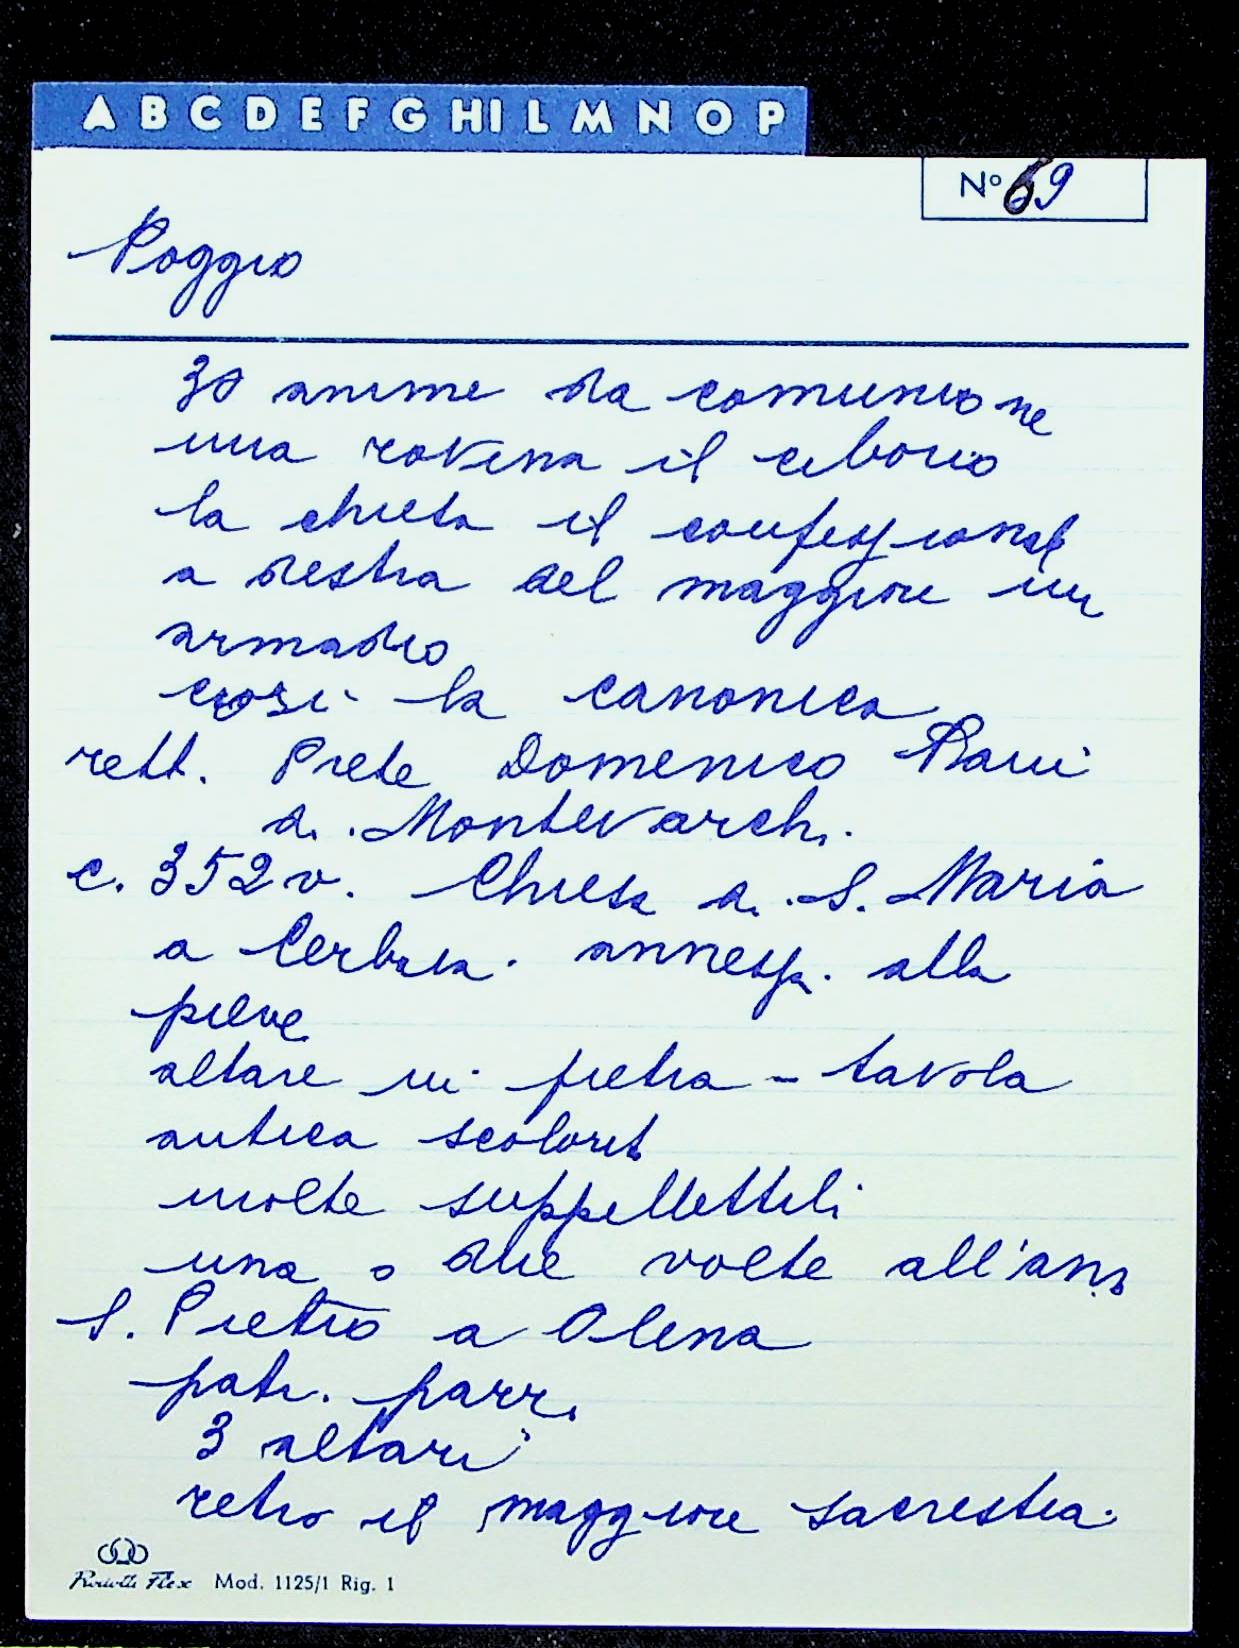 A B C D E F G H I L M N O P
N° 69
Poggio
30 anime da comunione
una rovina il ciborio
la chiesa il confessionale
a destra del maggiore un
armadio
così la canonica
rett. Prete Domenico
di Montevarchi.
c. 352 v. Chiesa di S. Maria
a Cerbaia. annessa. alla
pieve
altare in pietra - tavola
antica scolorit
molte suppellettili
una o due volte all'anno
S. Pietro a Olena
patr. parr.
3 altari
retro il maggiore sacrestia.
Flex Mod. 1125/1 Rig. 1